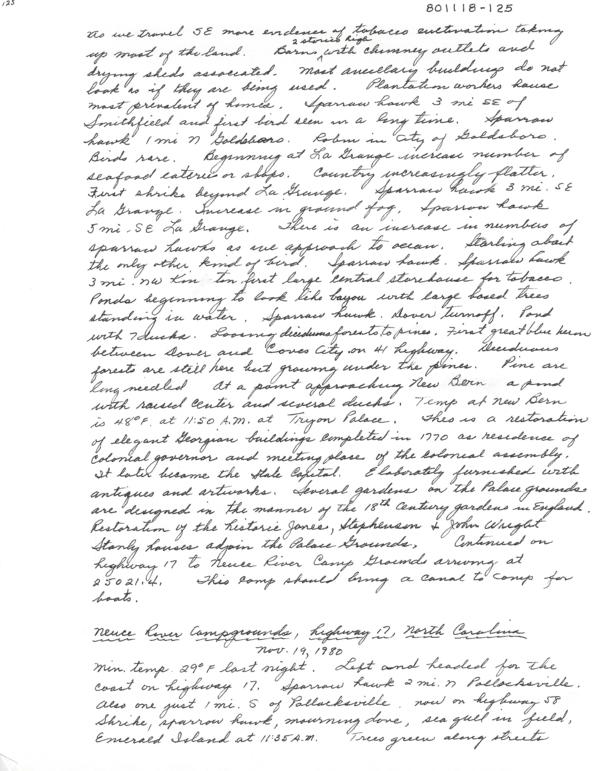 125
801118-125
As we travel SE more evidence of tobacco cultivation taking
up most of the land. Barns 2 stories high with chimney outlets and
drying sheds associated. Most ancillary buildings do not
look as if they are being used. Plantation workers house
most prevalent of homes. Sparrow hawk 3 mi SE of
Smithfield and first bird seen in a long time. Sparrow
hawk 1 mi N Goldsboro. Robin in City of Goldsboro.
Birds rare. Beginning at La Grange increase number of
seafood eateries or shops. Country increasingly flatter.
First shrike beyond La Grange. Sparrow hawk 3 mi. SE
La Grange. Increase in ground fog. Sparrow hawk
5 mi - SE La Grange. There is an increase in numbers of
sparrow hawks as we approach to ocean. Starling about
the only other kind of bird. Sparrow hawk. Sparrow hawk
3 mi. NW Kin ton first large central storehouse for tobacco.
Ponds beginning to look like bayou with large based trees
standing in water. Sparrow hawk. Dover turnoff. Pond
with 7 ducks. Loosing deciduous forests to pines. First great blue heron
between Dover and Coves City on 41 highway. Deciduous
forests are still here but growing under the pines. Pine are
long needled At a point approaching New Bern a pond
with raised center and several ducks. Temp at New Bern
is 48°F. at 11:50 A.M. at Tryon Palace. This is a restoration
of elegant Georgian buildings completed in 1770 as residence of
colonial governor and meeting place of the colonial assembly.
It later became the State Capital. Elaborately furnished with
antiques and artworks. Several gardens on the Palace grounds
are designed in the manner of the 18th Century gardens in England.
Restoration of the historic Jones, Stephenson & John Wright
Stanly houses adjoin the Palace Grounds. Continued on
highway 17 to Neuce River Camp Grounds arriving at
25021.4. This camp should bring a canal to camp for
boats.
Neuce River Campgrounds, highway 17, North Carolina
Nov. 19, 1980
Min. temp. 29°F last night. Left and headed for the
coast on highway 17. Sparrow hawk 2 mi. N Pollocksville.
Also one just 1 mi. S of Pollocksville. now on highway 58
Shrike, sparrow hawk, mourning dove, sea gull in field,
Emerald Island at 11:35 A.M. Trees green along streets